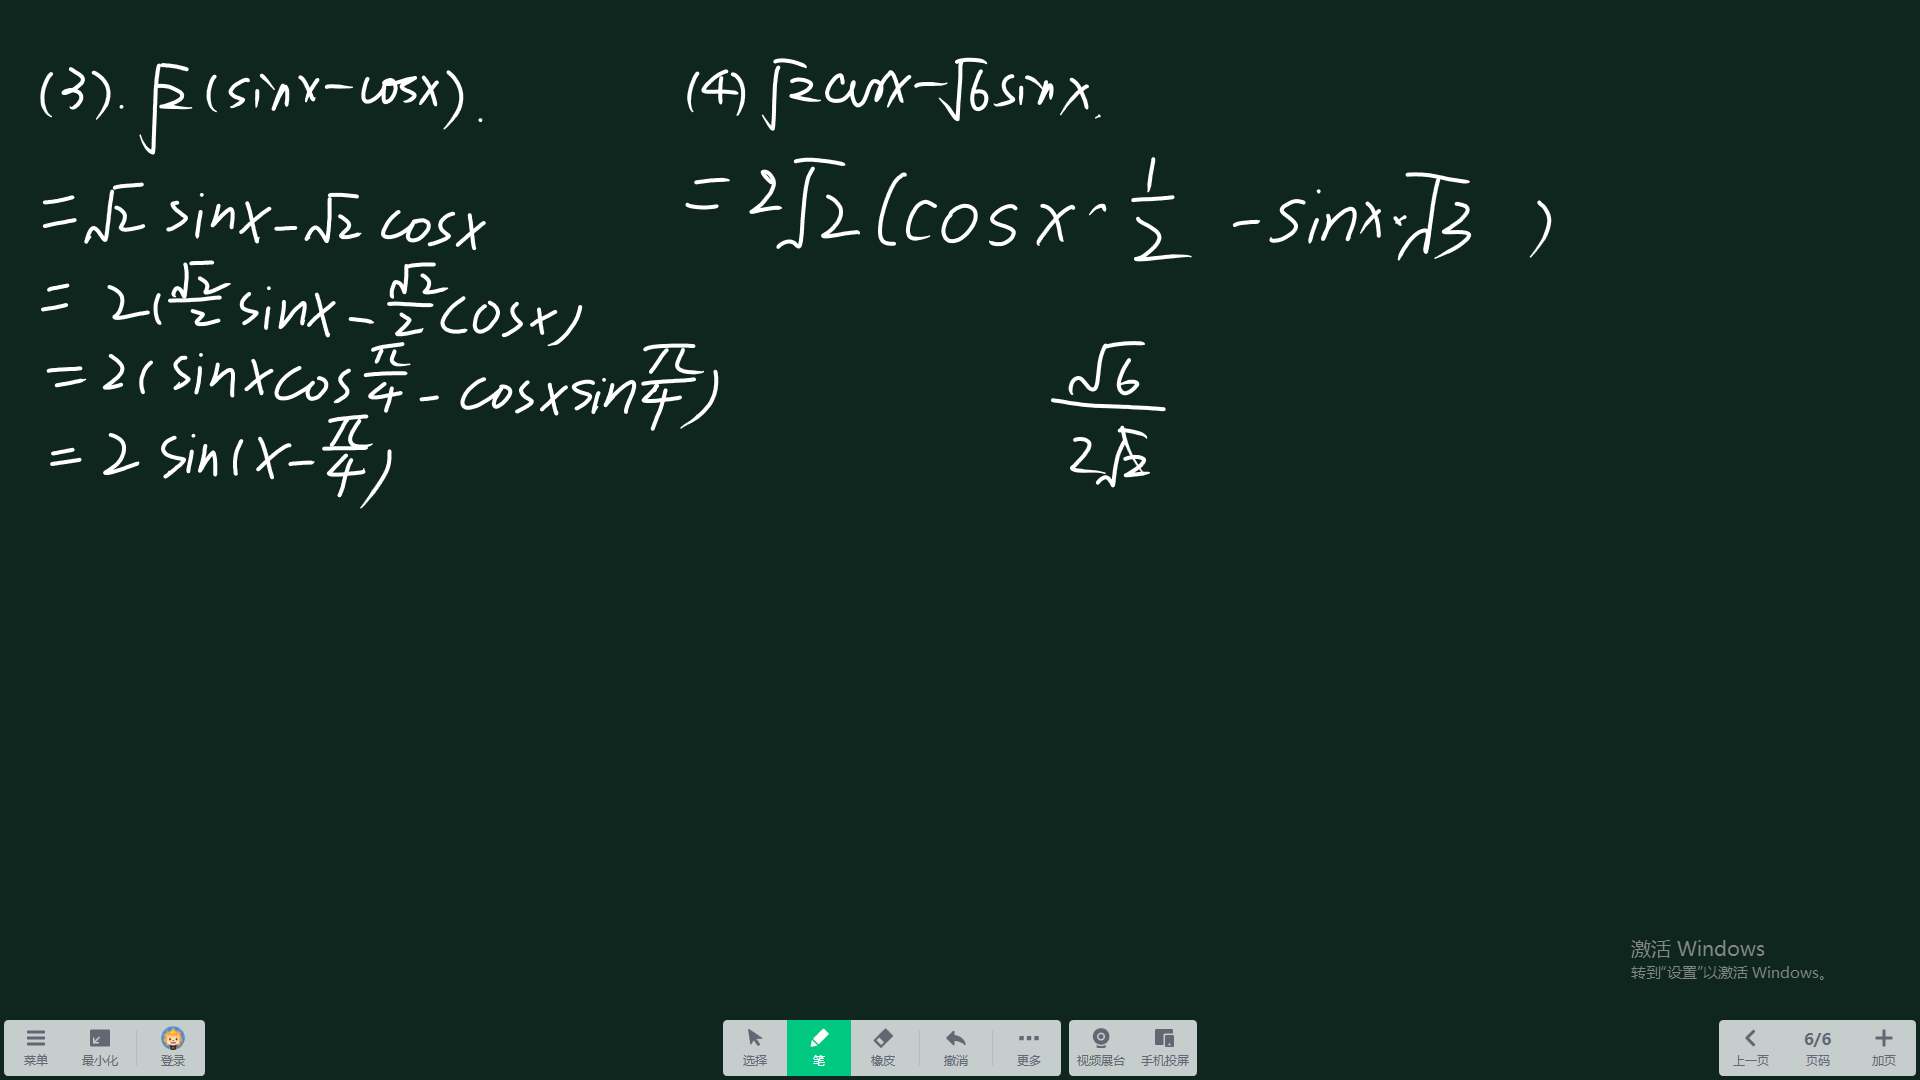 (3). √2 (sinx-cosx).
= √2 sinx - √2 cosx
= 2(√2/2 sinx - √2/2 cosx)
= 2( sinxcosπ/4 - cosxsinπ/4)
= 2 sin(x-π/4)
(4) √2 cosx-√6 sinx.
= 2√2 (cosx·1/2 - sinx·√3 )
√6/2√2
激活 Windows
转到“设置”以激活 Windows。
菜单 最小化 登录
选择 笔 橡皮 撤消 更多 视频展台 手机投屏
6/6
上一页 页码 加页